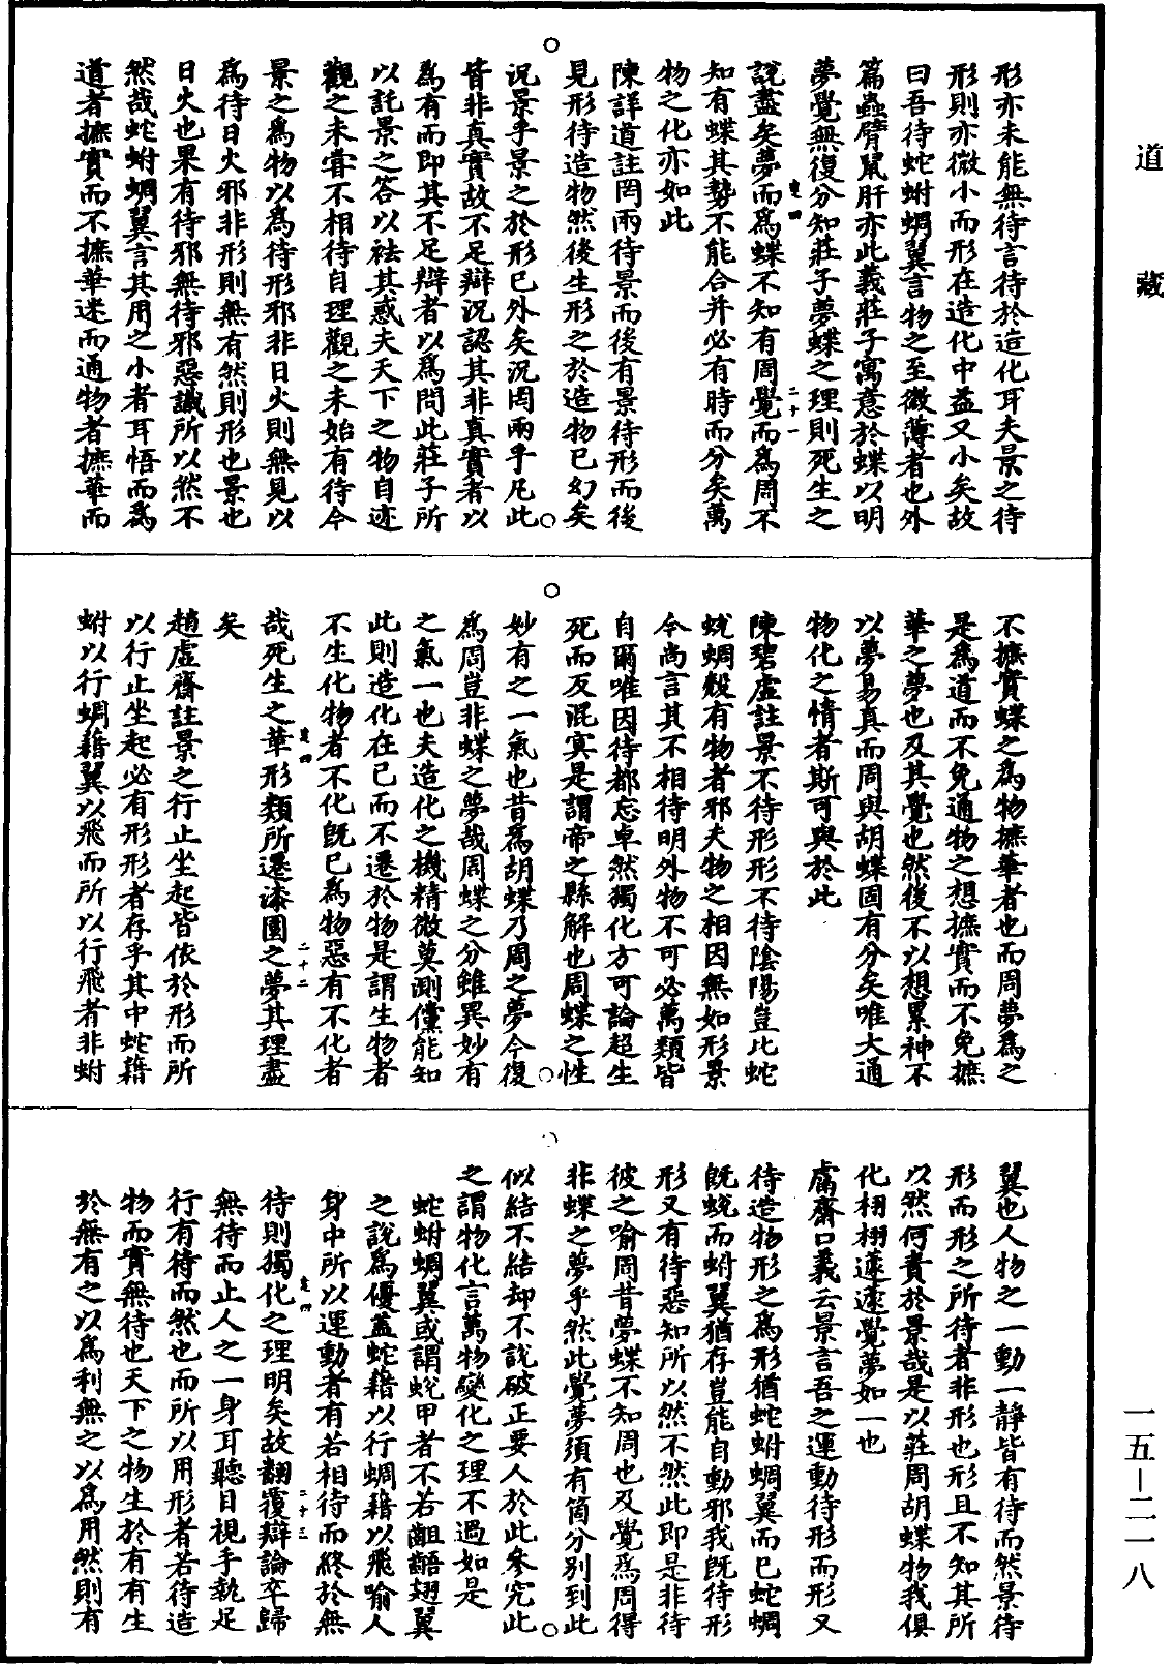 道藏
形亦未能無待言待於造化耳夫景之待
形則亦微小而形在造化中益又小矣故
曰吾待蛇蚹蜩翼言物之至微薄者也外
篇蟲臂鼠肝亦此義莊子寓意於蝶以明
夢覺無復分知莊子夢蝶之理則死生之
說盡矣夢而為蝶不知有周覺而為周不
知有蝶其勢不能合并必有時而分矣萬
物之化亦如此
陳詳道註罔兩待景而後有景待形而後
見形待造物然後生形之於造物已幻矣
況景乎景之於形已外矣況罔兩乎凡此
皆非真實故不足辯況認其非真實者以
為有而即其不足辯者以為問此莊子所
以託景之答以袪其惑夫天下之物自迹
觀之未甞不相待自理觀之未始有待今
景之為物以為待形邪非日火則無見以
為待日火邪非形則無有然則形也景也
日火也果有待邪無待邪惡識所以然不
然哉蛇蚹蜩翼言其用之小者耳悟而為
道者摭實而不摭華迷而通物者摭華而
不摭實蝶之為物摭華者也而周夢為之
是為道而不免通物之想摭實而不免摭
華之夢也及其覺也然後不以想累神不
以夢易真而周與胡蝶固有分矣唯大通
物化之情者斯可與於此
陳碧虛註景不待形形不待陰陽豈比蛇
蛻蜩殼有物者邪夫物之相因無如形景
今尚言其不相待明外物不可必萬類皆
自爾唯因待都忘卓然獨化方可論超生
死而反混冥是謂帝之縣解也周蝶之性
妙有之一氣也昔為胡蝶乃周之夢今復
為周豈非蝶之夢哉周蝶之分雖異妙有
之氣一也夫造化之機精微莫測儻能知
此則造化在己而不遷於物是謂生物者
不生化物者不化既已為物惡有不化者
哉死生之革形類所遷漆園之夢其理盡
矣
趙虛齋註景之行止坐起皆依於形而所
以行止坐起必有形形者存乎其中蛇藉
蚹以行蜩藉翼以飛而所以行飛者非蚹
翼也人物之一動一靜皆有待而然景待
形而形之所待者非形也形且不知其所
以然何責於景哉是以莊周胡蝶物我俱
化栩栩蘧蘧覺夢如一也
鬳齋口義云景言吾之運動待形而形又
待造物形之為形猶蛇蚹蜩翼而已蛇蜩
既蛻而蚹翼猶存豈能自動邪我既待形
形又有待惡知所以然不然此即是非待
彼之喻周昔夢蝶不知周也及覺為周得
非蝶之夢乎然此覺夢須有箇分別到此
似結不結却不說破正要人於此參究此
之謂物化言萬物變化之理不過如是
蛇蚹蜩翼或謂蛻甲者不若齟齬翅翼
之說為優蓋蛇藉以行蜩藉以飛喻人
身中所以運動者有若相待而終於無
待則獨化之理明矣故翻覆辯論卒歸
無待而止人之一身耳聽目視手執足
行有待而然也而所以用形者若待造
物而實無待也天下之物生於有有生
於無有之以為利無之以為用然則有
一五—二一八